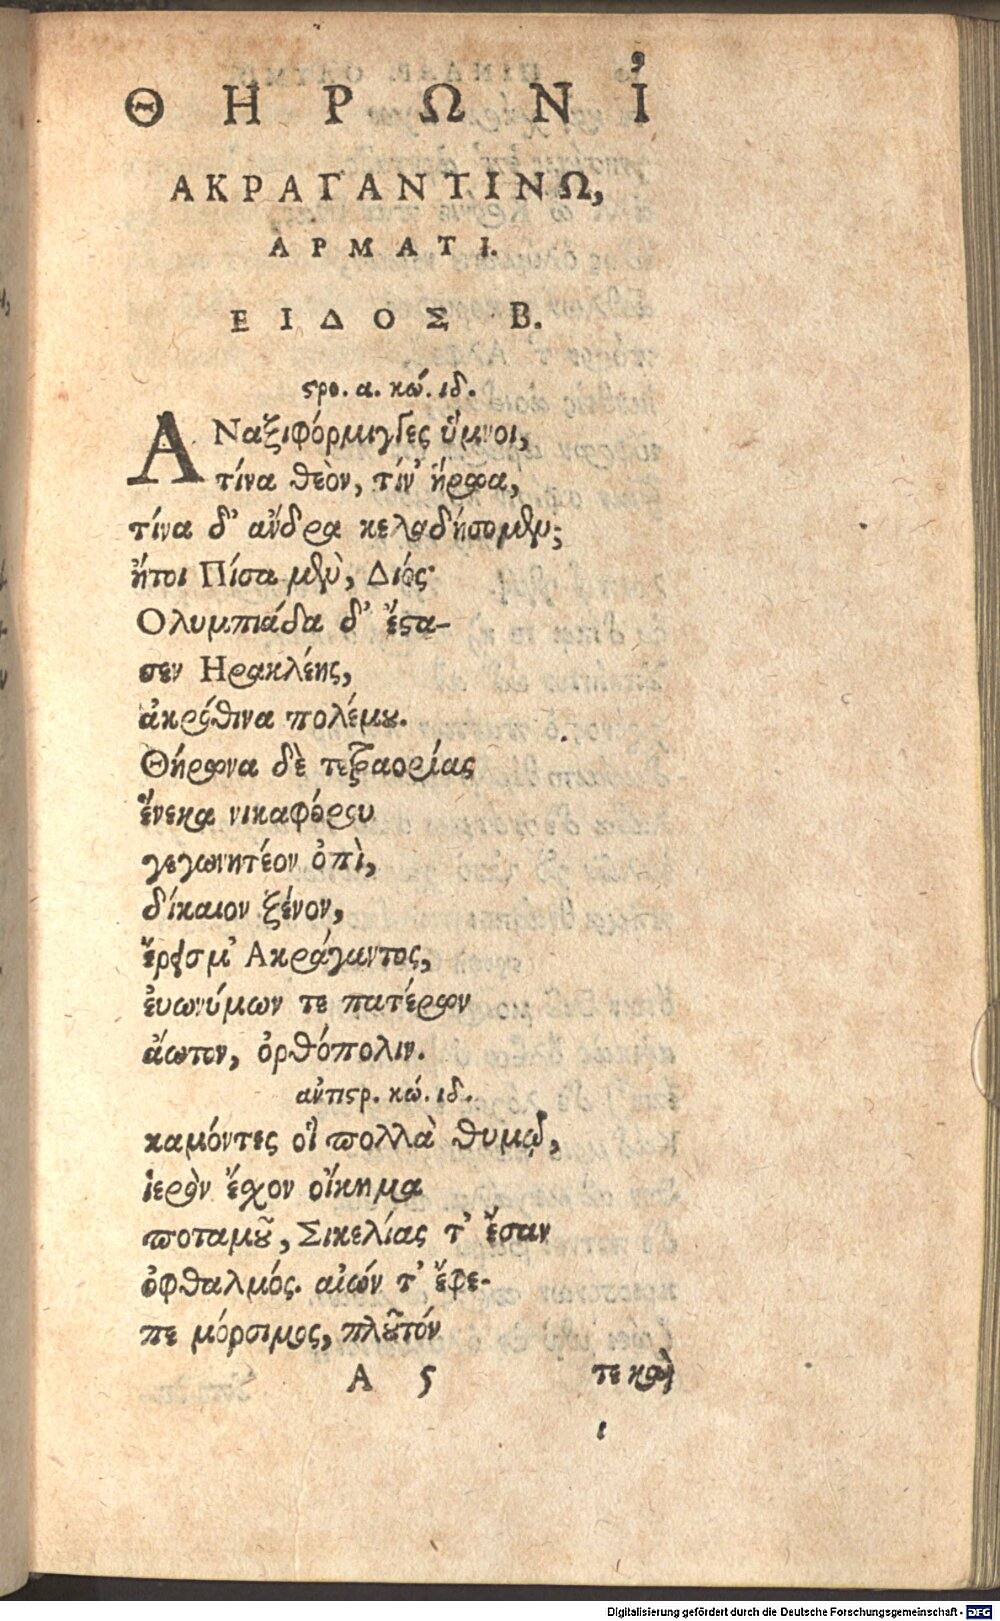 ΘΗΡΩΝΙ
ΑΚΡΑΓΑΝΤΙΝΩ,
ΑΡΜΑΤΙ.
ΕΙΔΟΣ Β.
ϛρο. α. κώ. ιδ.
ΑΝαξιφόρμιγγες ὕμνοι,
τίνα θεὸν, τίν' ἥρωα,
τίνα δ' ἄνδρα κελαδήσομεν;
ἤτοι Πίσα μὲν, Διός·
Ολυμπιάδα δ' ἔϛα-
σεν Ηρακλέης,
ἀκρόθινα πολέμου.
Θήρωνα δὲ τετραορίας
ἕνεκα νικαφόρου
γεγωνητέον ὀπὶ,
δίκαιον ξένον,
ἔρεισμ' Ακράγαντος,
ἐυωνύμων τε πατέρων
ἄωτον, ὀρθόπολιν.
ἀντιϛρ. κώ. ιδ.
καμόντες οἳ πολλὰ θυμῷ,
ἱερὸν ἔχον οἴκημα
ποταμοῦ, Σικελίας τ' ἔσαν
ὀφθαλμός. αἰών τ' ἔφε-
πε μόρσιμος, πλοῦτόν
Α 5 τε καὶ
Digitalisierung gefördert durch die Deutsche Forschungsgemeinschaft - DFG